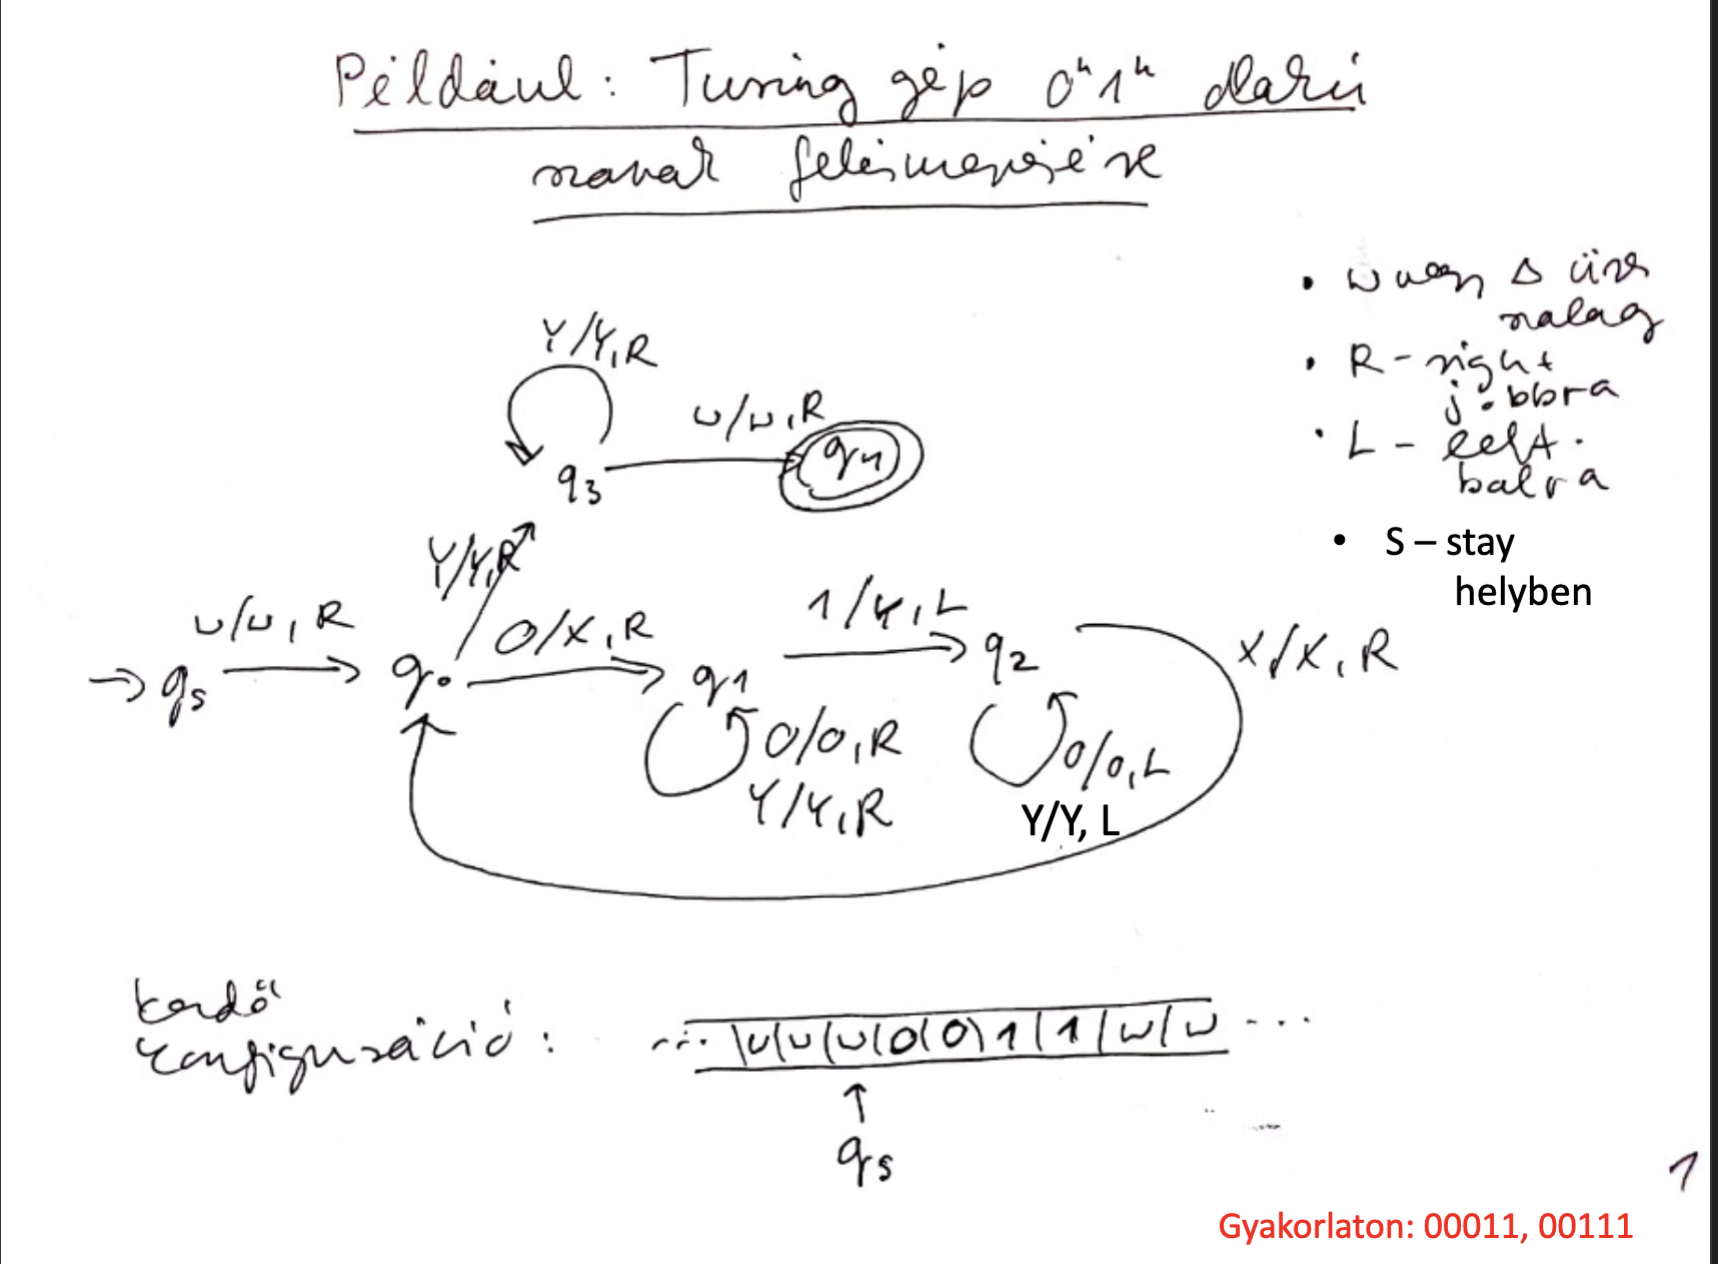 Például: Turing gép 0ⁿ1ⁿ alakú
szavak felismerésére
• ⊔ vagy Δ üres
szalag
• R - right
jobbra
• L - left
balra
• S – stay
helyben
Y/Y, R
⊔/⊔, R
q3
q4
Y/Y, R
⊔/⊔, R
0/X, R
1/Y, L
X/X, R
→ qs
q0
q1
q2
0/0, R
Y/Y, R
0/0, L
Y/Y, L
kezdő
konfiguráció: ... |⊔|⊔|⊔|0|0|1|1|⊔|⊔ ...
↑
qs
1
Gyakorlaton: 00011, 00111